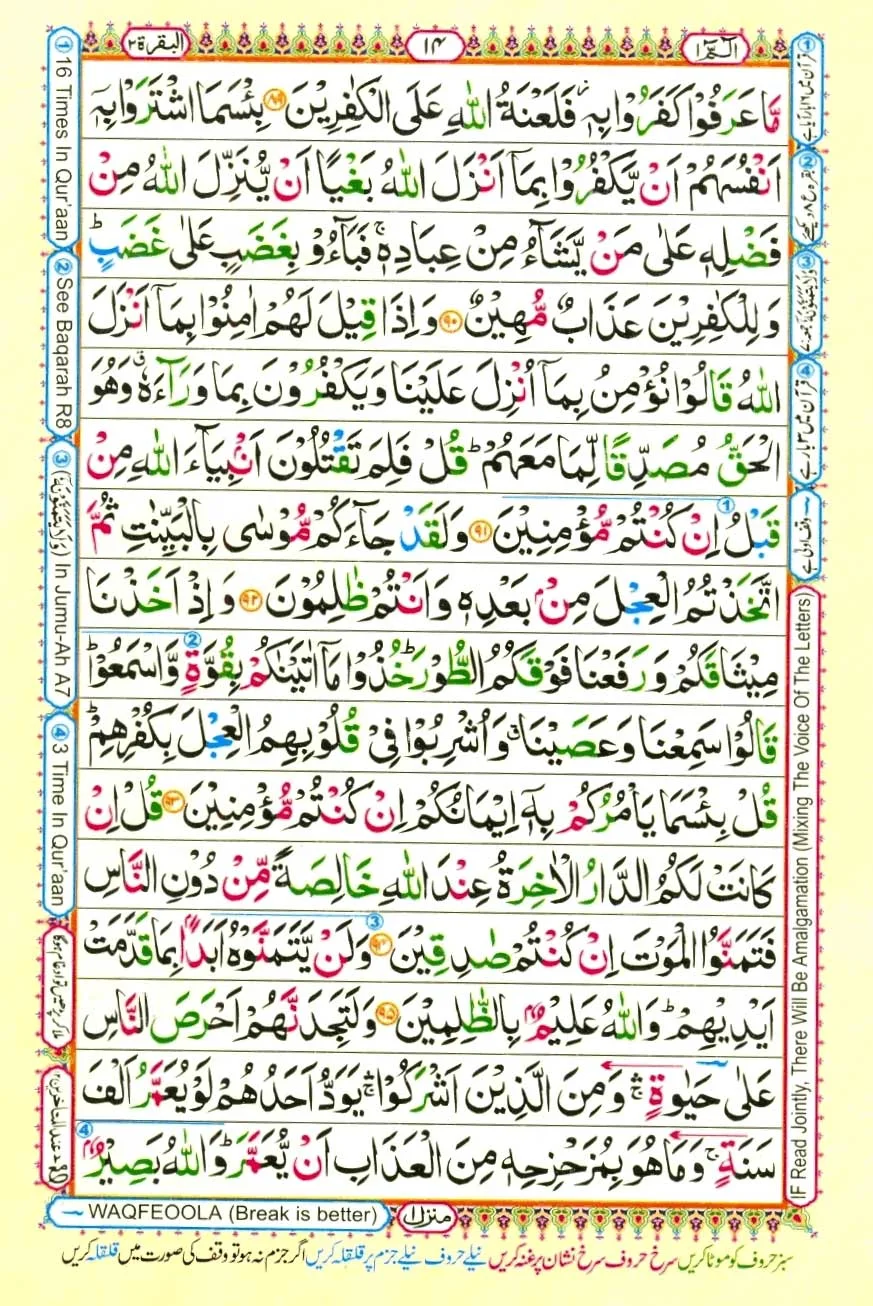 الٓمّٓ ١
١٤
البقرة ٢
مَّا عَرَفُوْا كَفَرُوْا بِهٖ٘ فَلَعْنَةُ اللّٰهِ عَلَى الْكٰفِرِیْنَ ﴿۸۹﴾ بِئْسَمَا اشْتَرَوْا بِهٖۤ
اَنْفُسَهُمْ اَنْ یَّكْفُرُوْا بِمَاۤ اَنْزَلَ اللّٰهُ بَغْیًا اَنْ یُّنَزِّلَ اللّٰهُ مِنْ
فَضْلِهٖ عَلٰى مَنْ یَّشَآءُ مِنْ عِبَادِهٖ ۚ فَبَآءُوْ بِغَضَبٍ عَلٰى غَضَبٍ ؕ
وَ لِلْكٰفِرِیْنَ عَذَابٌ مُّهِیْنٌ ﴿۹۰﴾ وَ اِذَا قِیْلَ لَهُمْ اٰمِنُوْا بِمَاۤ اَنْزَلَ
اللّٰهُ قَالُوْا نُؤْمِنُ بِمَاۤ اُنْزِلَ عَلَیْنَا وَ یَكْفُرُوْنَ بِمَا وَرَآءَهٗ ۗ وَ هُوَ
الْحَقُّ مُصَدِّقًا لِّمَا مَعَهُمْ ؕ قُلْ فَلِمَ تَقْتُلُوْنَ اَنْۢبِیَآءَ اللّٰهِ مِنْ
قَبْلُ اِنْ كُنْتُمْ مُّؤْمِنِیْنَ ﴿۹۱﴾ وَ لَقَدْ جَآءَكُمْ مُّوْسٰى بِالْبَیِّنٰتِ ثُمَّ
اتَّخَذْتُمُ الْعِجْلَ مِنْۢ بَعْدِهٖ وَ اَنْتُمْ ظٰلِمُوْنَ ﴿۹۲﴾ وَ اِذْ اَخَذْنَا
مِیْثَاقَكُمْ وَ رَفَعْنَا فَوْقَكُمُ الطُّوْرَ ؕ خُذُوْا مَاۤ اٰتَیْنٰكُمْ بِقُوَّةٍ وَّ اسْمَعُوْا ؕ
قَالُوْا سَمِعْنَا وَ عَصَیْنَا ۗ وَ اُشْرِبُوْا فِیْ قُلُوْبِهِمُ الْعِجْلَ بِكُفْرِهِمْ ؕ
قُلْ بِئْسَمَا یَاْمُرُكُمْ بِهٖۤ اِیْمَانُكُمْ اِنْ كُنْتُمْ مُّؤْمِنِیْنَ ﴿۹۳﴾ قُلْ اِنْ
كَانَتْ لَكُمُ الدَّارُ الْاٰخِرَةُ عِنْدَ اللّٰهِ خَالِصَةً مِّنْ دُوْنِ النَّاسِ
فَتَمَنَّوُا الْمَوْتَ اِنْ كُنْتُمْ صٰدِقِیْنَ ﴿۹۴﴾ وَ لَنْ یَّتَمَنَّوْهُ اَبَدًۢا بِمَا قَدَّمَتْ
اَیْدِیْهِمْ ؕ وَ اللّٰهُ عَلِیْمٌۢ بِالظّٰلِمِیْنَ ﴿۹۵﴾ وَ لَتَجِدَنَّهُمْ اَحْرَصَ النَّاسِ
عَلٰى حَیٰوةٍ ۛۚ وَ مِنَ الَّذِیْنَ اَشْرَكُوْا ۛۚ یَوَدُّ اَحَدُهُمْ لَوْ یُعَمَّرُ اَلْفَ
سَنَةٍ ۚ وَ مَا هُوَ بِمُزَحْزِحِهٖ مِنَ الْعَذَابِ اَنْ یُّعَمَّرَ ؕ وَ اللّٰهُ بَصِیْرٌۢ
① 16 Times In Qur'aan
② See Baqarah R8
③ (وَلَا یَتَمَنَّوْنَهٗ) In Jumu-Ah A7
④ 3 Time In Qur'aan
IF Read Jointly, There Will Be Amalgamation (Mixing The Voice Of The Letters)
WAQFEOOLA (Break is better)
منزل ١
سبز حروف کو موٹا کریں سرخ حروف سرخ نشان پر غنہ کریں نیلے حروف نیلے جزم پر قلقلہ کریں اگر جزم نہ ہو تو وقف کی صورت میں قلقلہ کریں